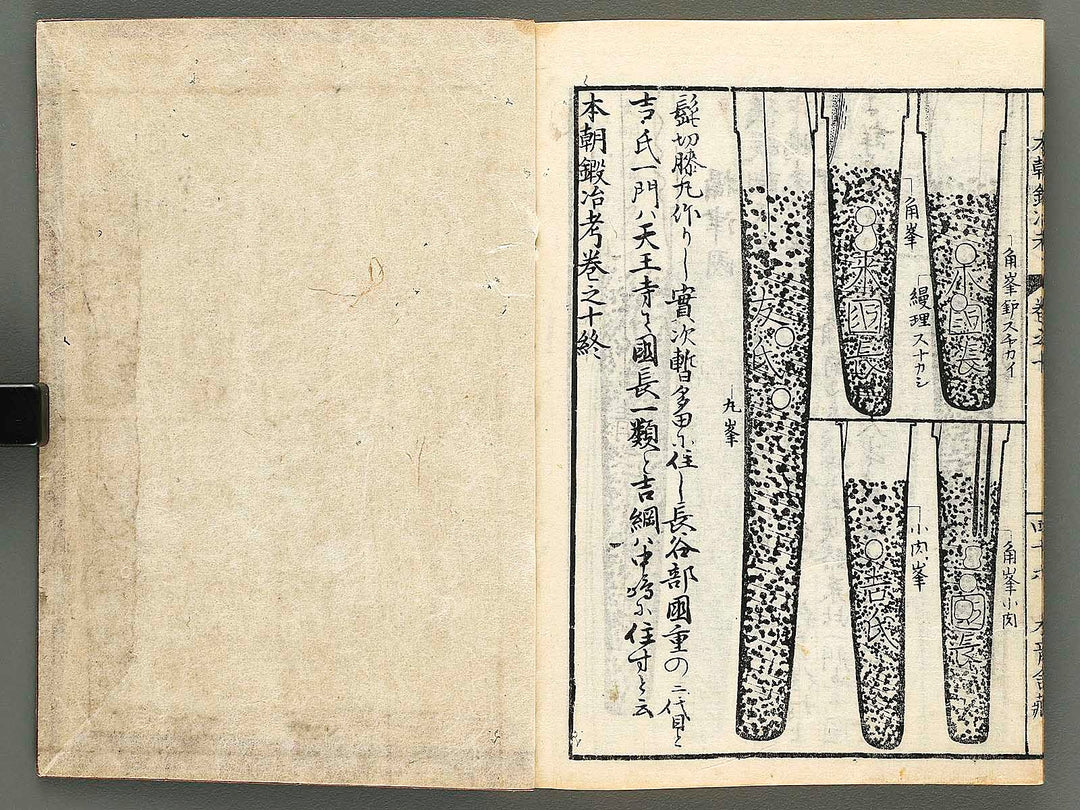 本朝鍛冶考 卷之十
角峯鈩スチカイ
来國長
角峯
縵理スナカシ
来國長
角峯小肉
来國長
小肉峯
吉氏
友氏
丸峯
髭切膝丸作りし實次暫多田ニ住し長谷部國重の二代目と
吉氏一門ハ天王寺と國長一類と吉綱ハ中嶋ニ住すと云
本朝鍛冶考卷之十終